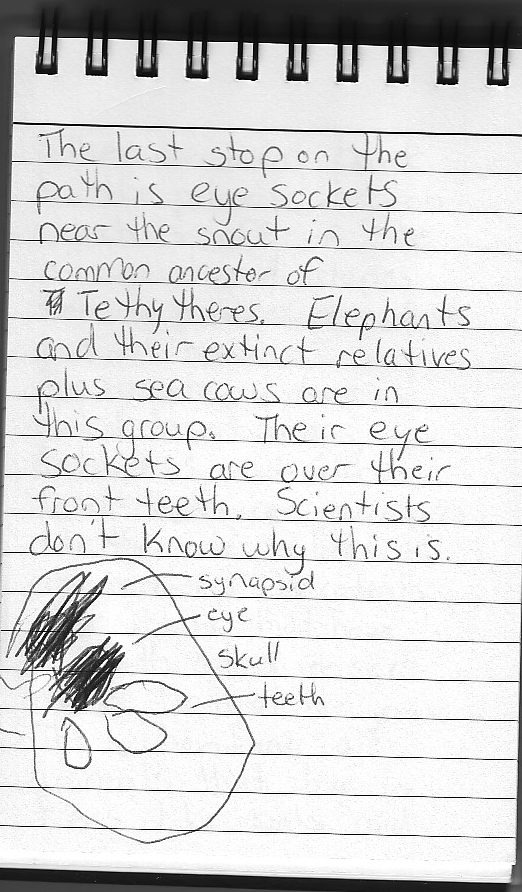 The last stop on the
path is eye sockets
near the snout in the
common ancestor of
Tethytheres. Elephants
and their extinct relatives
plus sea cows are in
this group. Their eye
sockets are over their
front teeth. Scientists
don't know why this is.
synapsid
eye
skull
teeth